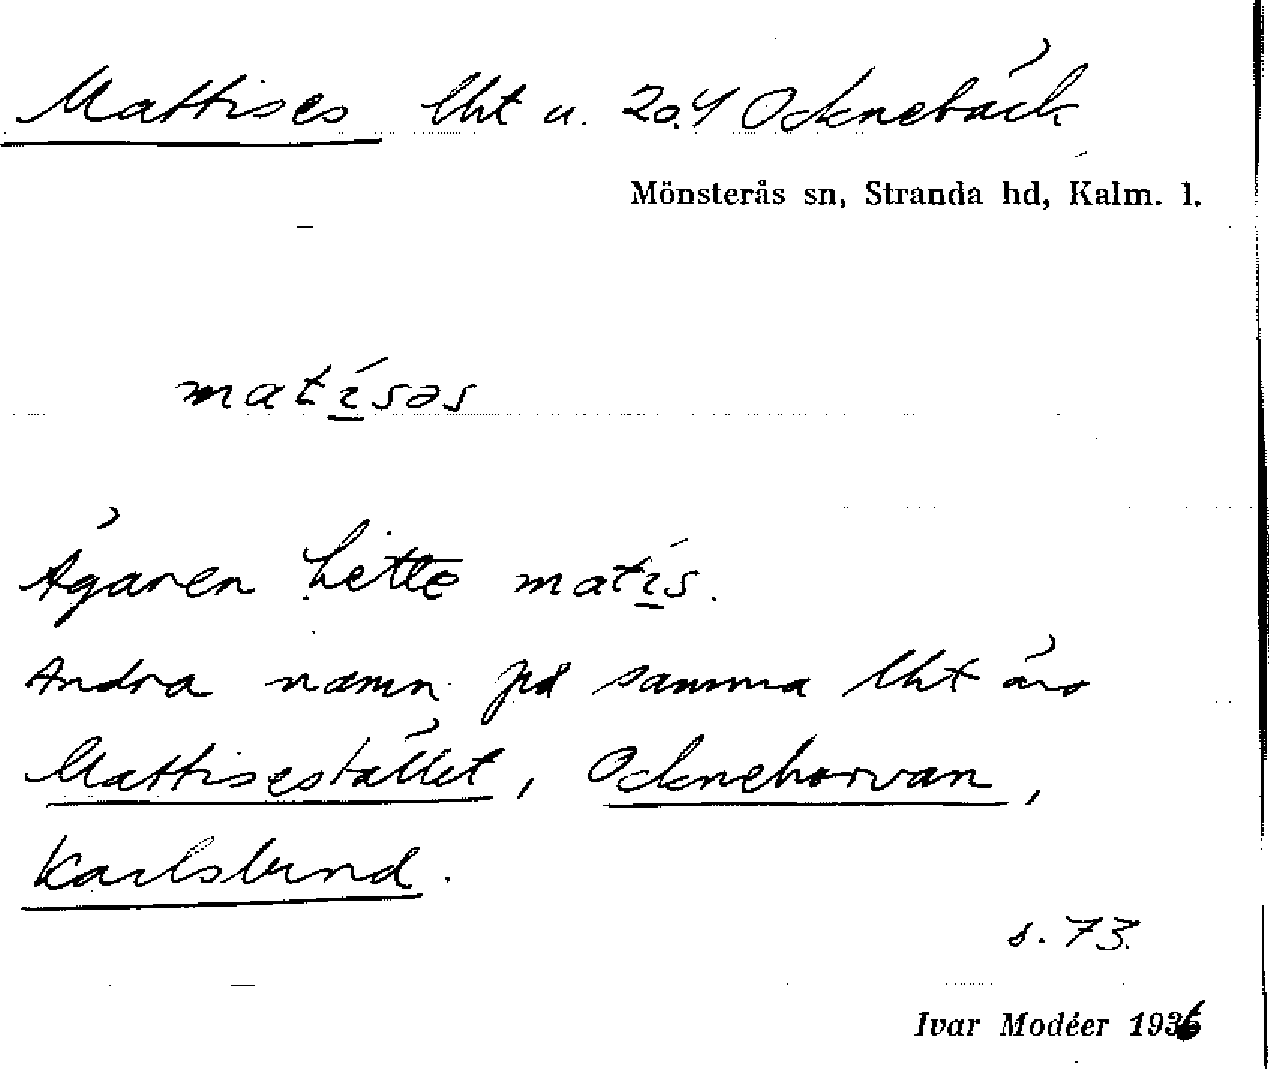 Mattises lht u. 20.4 Ocknebäck
Mönsterås sn, Stranda hd, Kalm. l.
matísəs
Ägaren hette matís.
Andra namn på samma lht äro
Mattisestället, Ocknehorvan,
Karlslund.
s. 73.
Ivar Modéer 1936